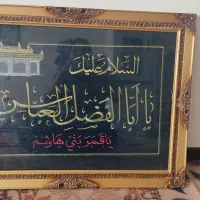 السلام عليك
يا أبا الفضل العباس
يا قمر بني هاشم